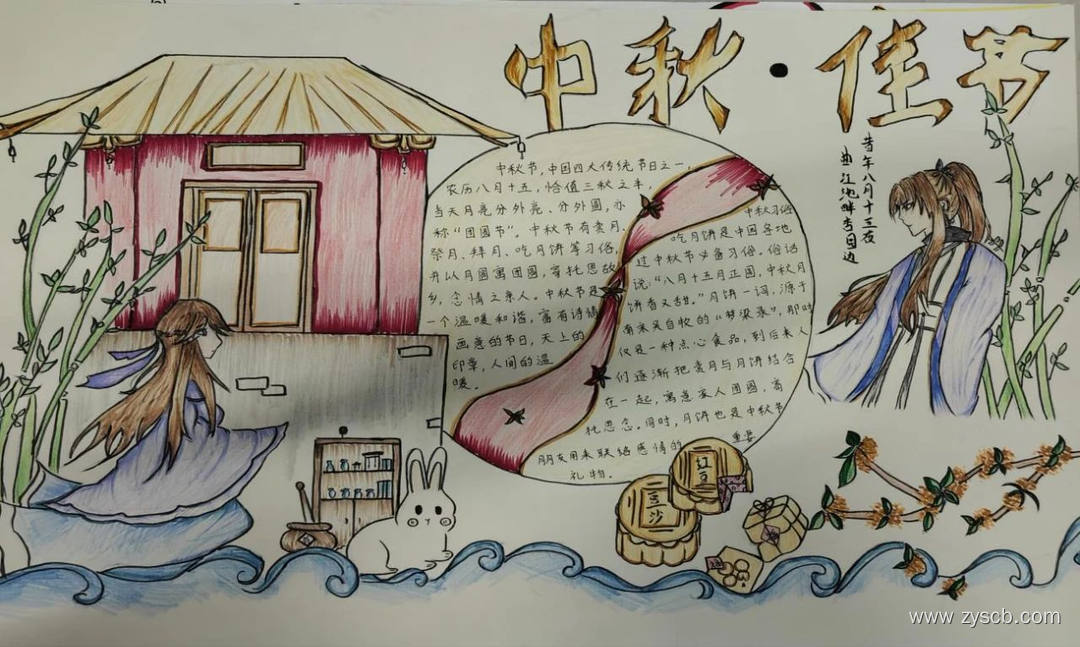 中秋·佳节
昔年八月十五夜
曲江池畔杏园边
中秋节,中国四大传统节日之一,
农历八月十五,恰值三秋之半,
当天月亮分外亮、分外圆,亦
称“团圆节”。中秋节有赏月、
祭月、拜月、吃月饼等习俗,
并以月圆寓团圆,寄托思故
乡,念情之亲人。中秋节是
一个温暖和谐,富有诗情
画意的节日,天上的
印章,人间的温
暖。
中秋习俗
吃月饼是中国各地
过中秋节必备习俗。俗话
说:“八月十五月正圆,中秋月
饼香又甜。”月饼一词,源于
南宋吴自牧的《梦粱录》,那时
仅是一种点心食品,到后来人
们逐渐把赏月与月饼结合
在一起,寓意家人团圆,寄
托思念。同时,月饼也是中秋节
朋友用来联络感情的重要
礼物。
红豆
豆沙
www.zyscb.com